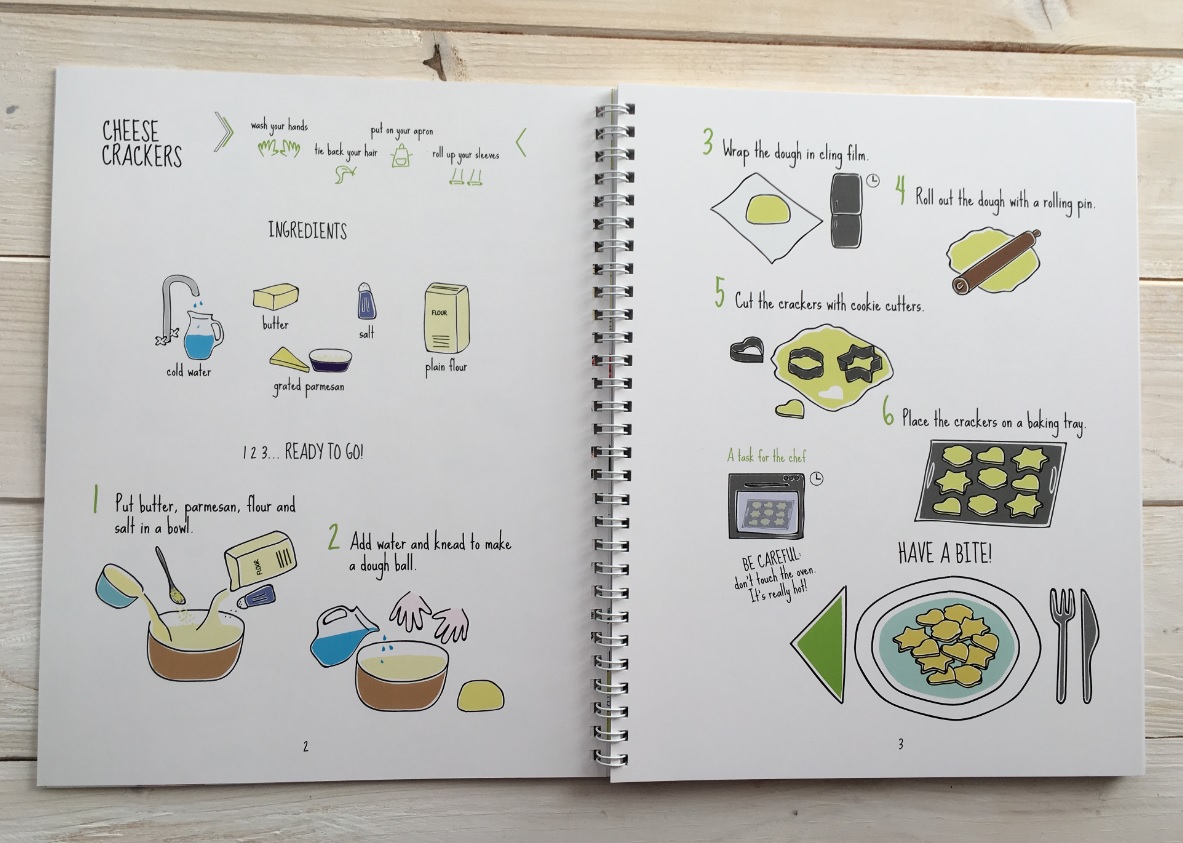 CHEESE
CRACKERS
wash your hands
put on your apron
tie back your hair
roll up your sleeves
INGREDIENTS
cold water
butter
grated parmesan
salt
FLOUR
plain flour
1 2 3... READY TO GO!
1 Put butter, parmesan, flour and
salt in a bowl.
FLOUR
2 Add water and knead to make
a dough ball.
2
3 Wrap the dough in cling film.
4 Roll out the dough with a rolling pin.
5 Cut the crackers with cookie cutters.
6 Place the crackers on a baking tray.
A task for the chef
BE CAREFUL:
don't touch the oven.
It's really hot!
HAVE A BITE!
3